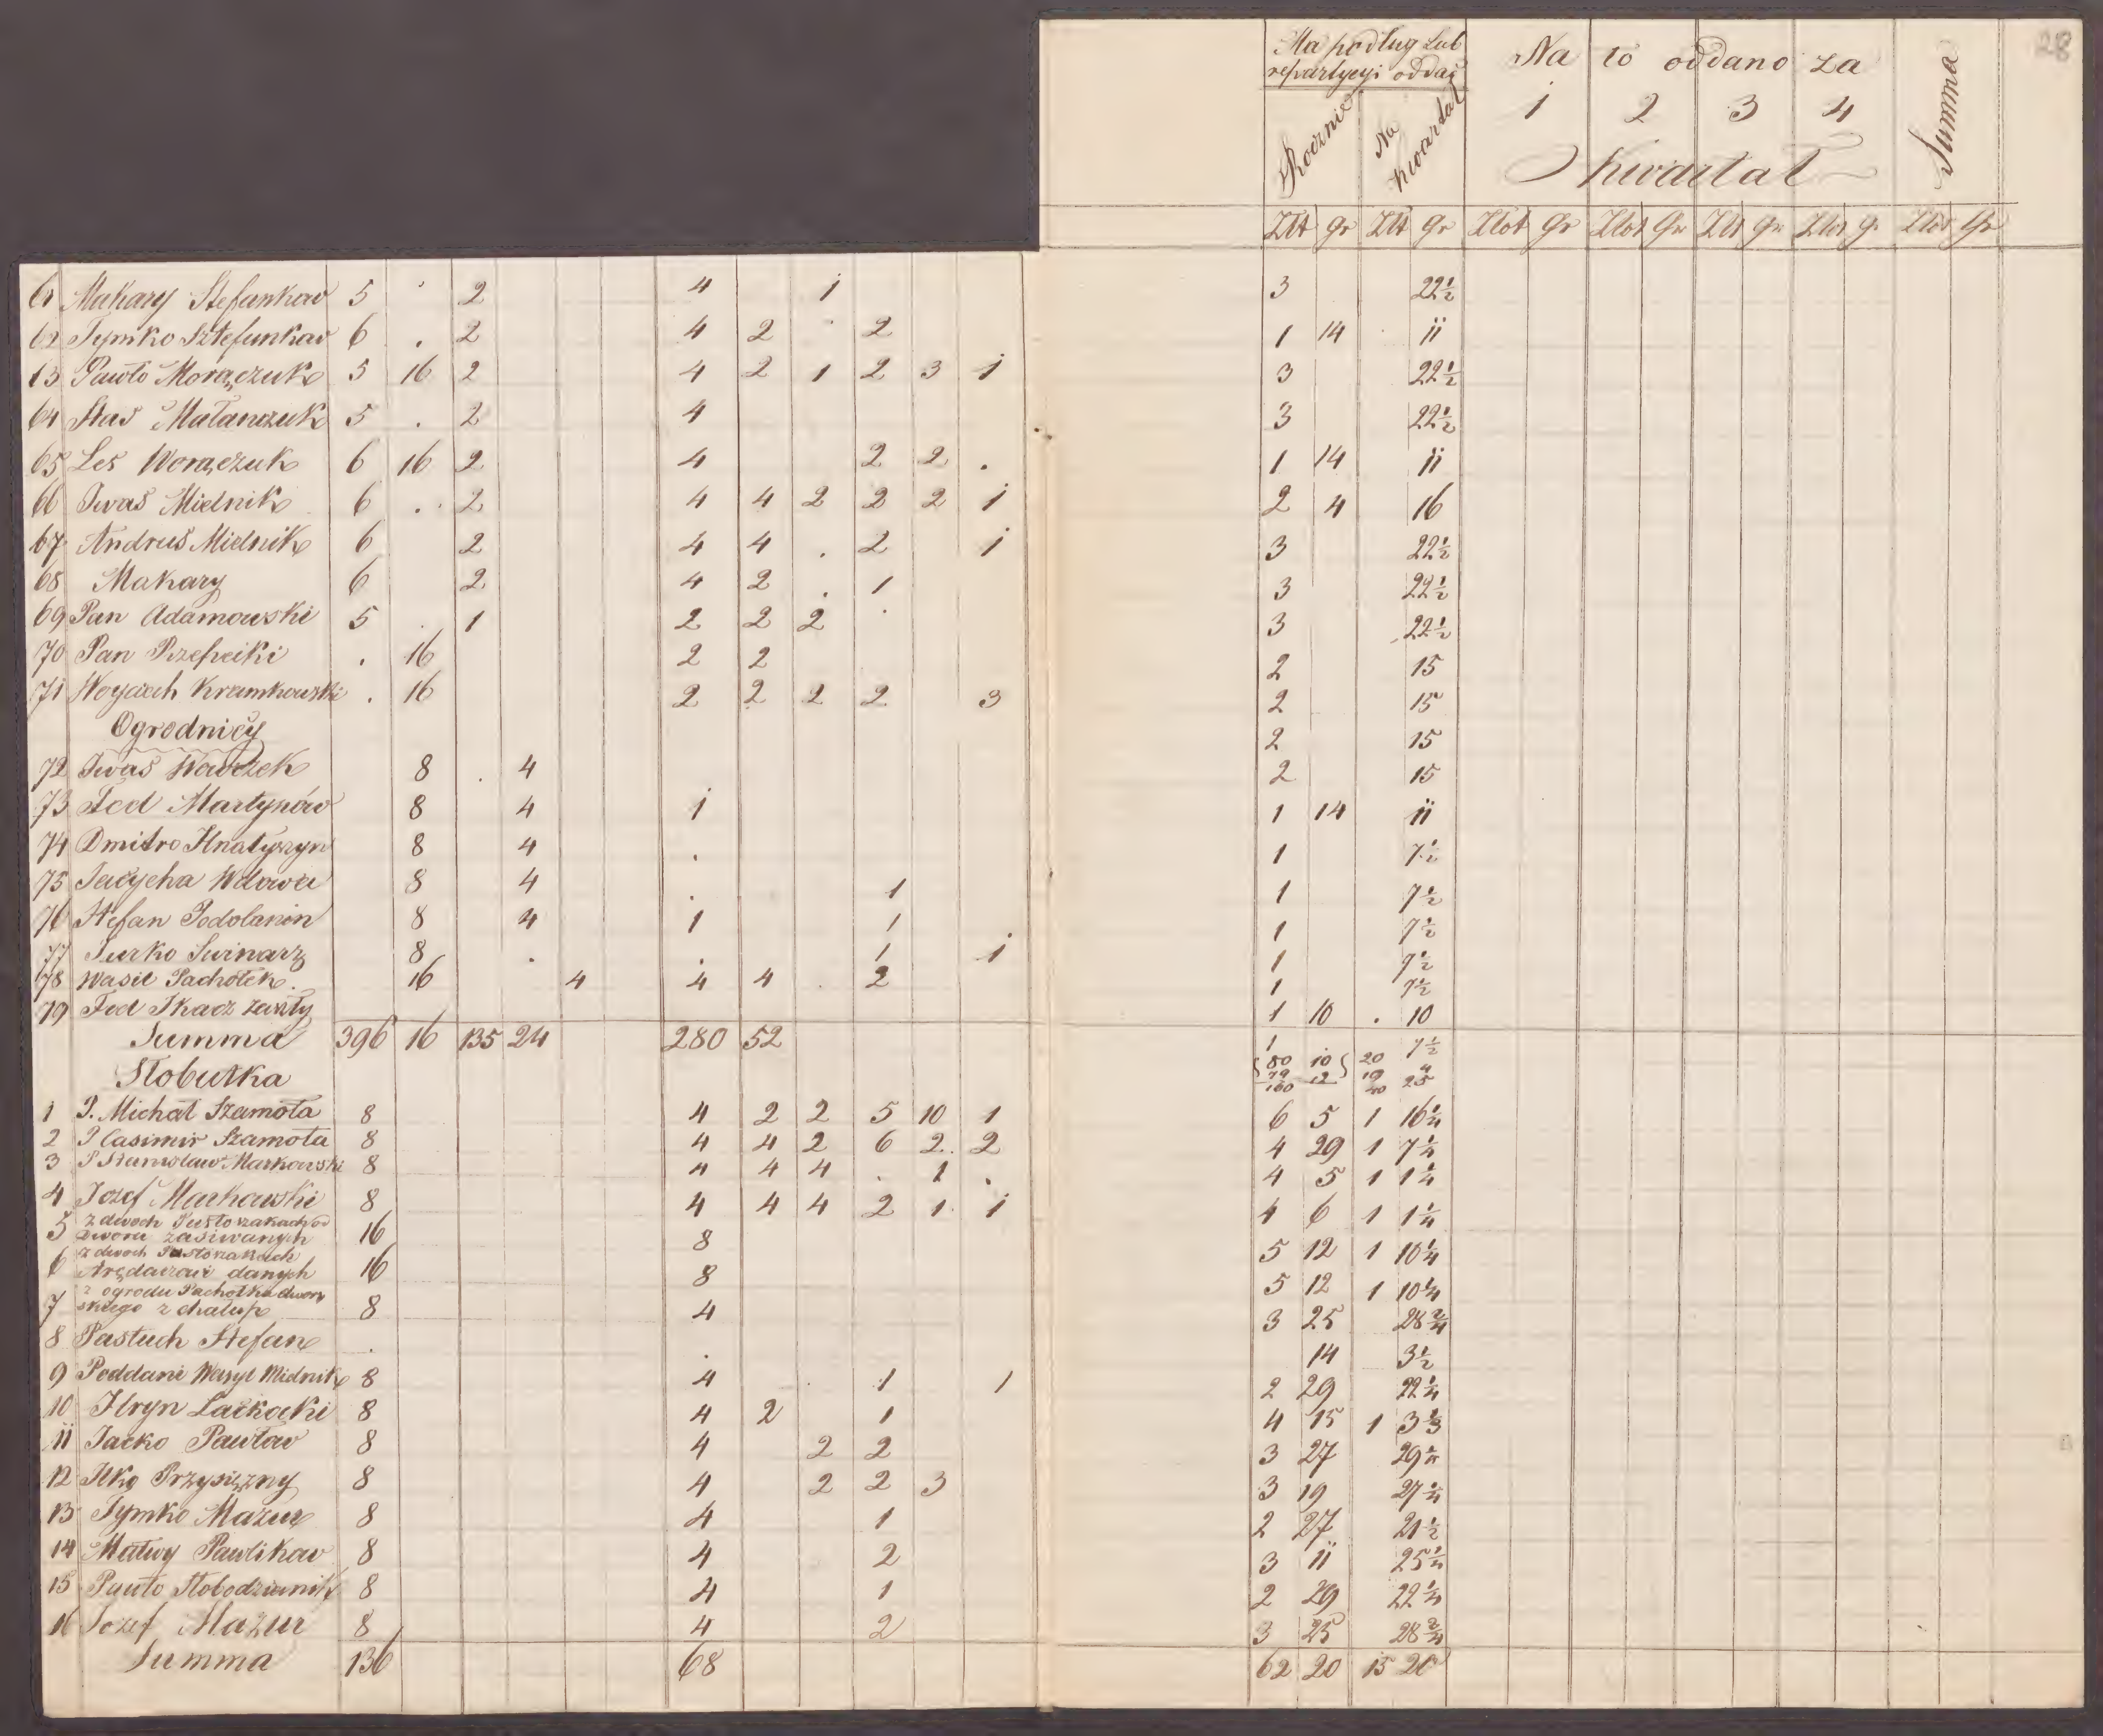 28
Ma podług Lub Na to oddano za Summa
repartycyi oddać
Rocznie Na kwartał 1 2 3 4
Kwartał
Złt gr Złt gr Złot gr Złot Gr Złt gr Złot g Złot Gr
61 Makary Stefankow 5 2 4 1 3 22½
62 Tymko Sztefunkow 6 . 2 4 2 . 2 1 14 . 11
13 Pawło Moraczuk 5 16 2 4 2 1 2 3 1 3 22½
64 Staś Małanczuk 5 . 2 4 3 22½
65 Les Woraczuk 6 16 2 4 2 2 . 1 14 11
66 Iwaś Mielnik 6 . 2 4 4 2 2 2 1 2 4 16
67 Andruś Mielnik 6 2 4 4 . 2 1 3 22½
68 Makary 6 2 4 2 . 1 3 22½
69 Pan Adamowski 5 . 1 2 2 2 . 3 22½
70 Pan 16 2 2 2 15
71 Woyciech Kramkowski . 16 2 2 2 2 3 2 15
Ogrodnicy 2 15
72 Iwaś Wowczek 8 . 4 2 15
73 Fed Martynów 8 4 1 1 14 11
74 Dmitro Hnatyszyn 8 4 . 1 7½
75 Jacycha Wdowa 8 4 . 1 1 7½
76 Stefan Podolanin 8 4 1 1 1 7½
77 Jurko Swinarz 8 . . 1 1 1 7½
78 Wasil Pachołek 16 4 4 4 . 2 1 7½
79 Fed Tkacz 1 10 . 10
Summa 396 16 135 24 280 52 1 7½
Słobutka 80 10 20
79 12 19
160 40 25
1 P. Michał Szamota 8 4 2 2 5 10 1 6 5 1 16¼
2 P Casimir Szamota 8 4 4 2 6 2 2 4 29 1 7¼
3 P Stanisław Markowski 8 4 4 4 . 1 . 4 5 1 1¼
4 Jozef Markowski 8 4 4 4 2 1 1 4 6 1 1¼
z dwoch
5 Dworu zasiwanych 16 8 5 12 1 10¼
z dwoch
6 Arędarowi danych 16 8 5 12 1 10¼
z ogrodu Pachołka dwor
7 skiego z chałup 8 4 3 25 28¾
8 Pastuch Stefan . . 14 3½
9 Poddani Wasyl Midnik 8 4 . 1 1 2 29 22¼
10 Hryn Lackocki 8 4 2 1 4 15 1 3⅓
11 Jacko Pawłow 8 4 2 2 3 27 29¼
12 Ilko Przysiężny 8 4 2 2 3 3 19 27¼
13 Tymko Mazur 8 4 1 2 27 21½
14 Matwy Pawlikow 8 4 2 3 11 25¼
15 Pawło Słobodzianik 8 4 1 2 29 22¼
16 Jozef Mazur 8 4 2 3 25 28¾
Summa 136 68 62 20 15 20